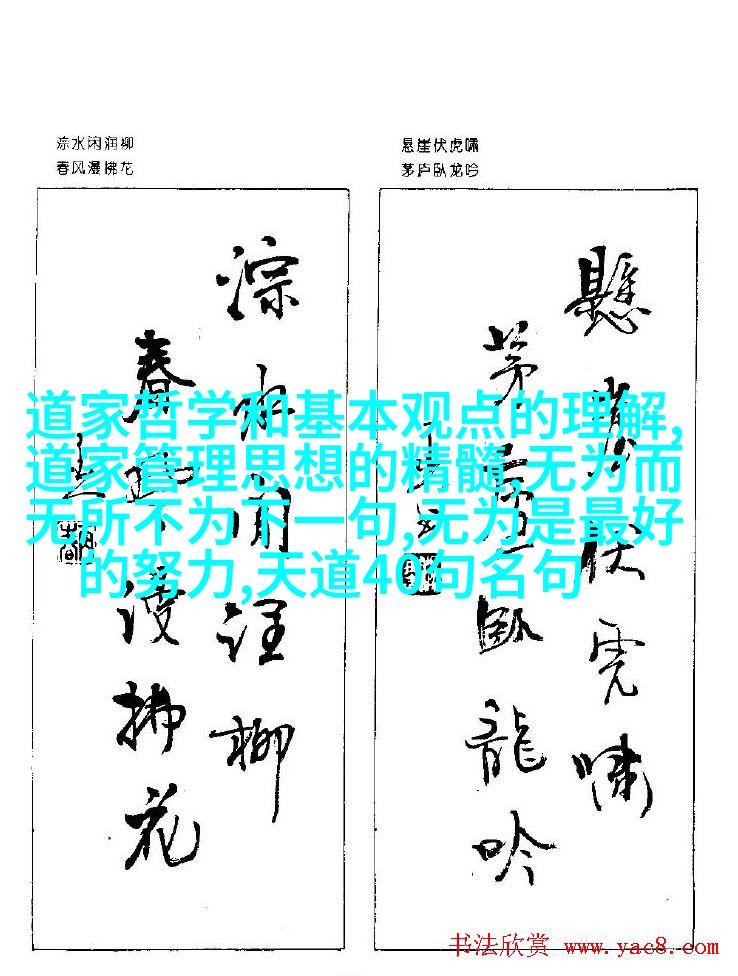 淙水闲润柳
春风漫拂花
悬崖伏虎啸
茅庐卧龙吟
道家哲学和基本观点的理解,
道家管理思想的精髓,无为而
无所不为下一句,无为是最好
的努力,天道40句名句
淙水闲润柳
春风漫拂花
懸崖伏虎嘯
茅廬卧龍吟
书法欣赏 www.yac8.com